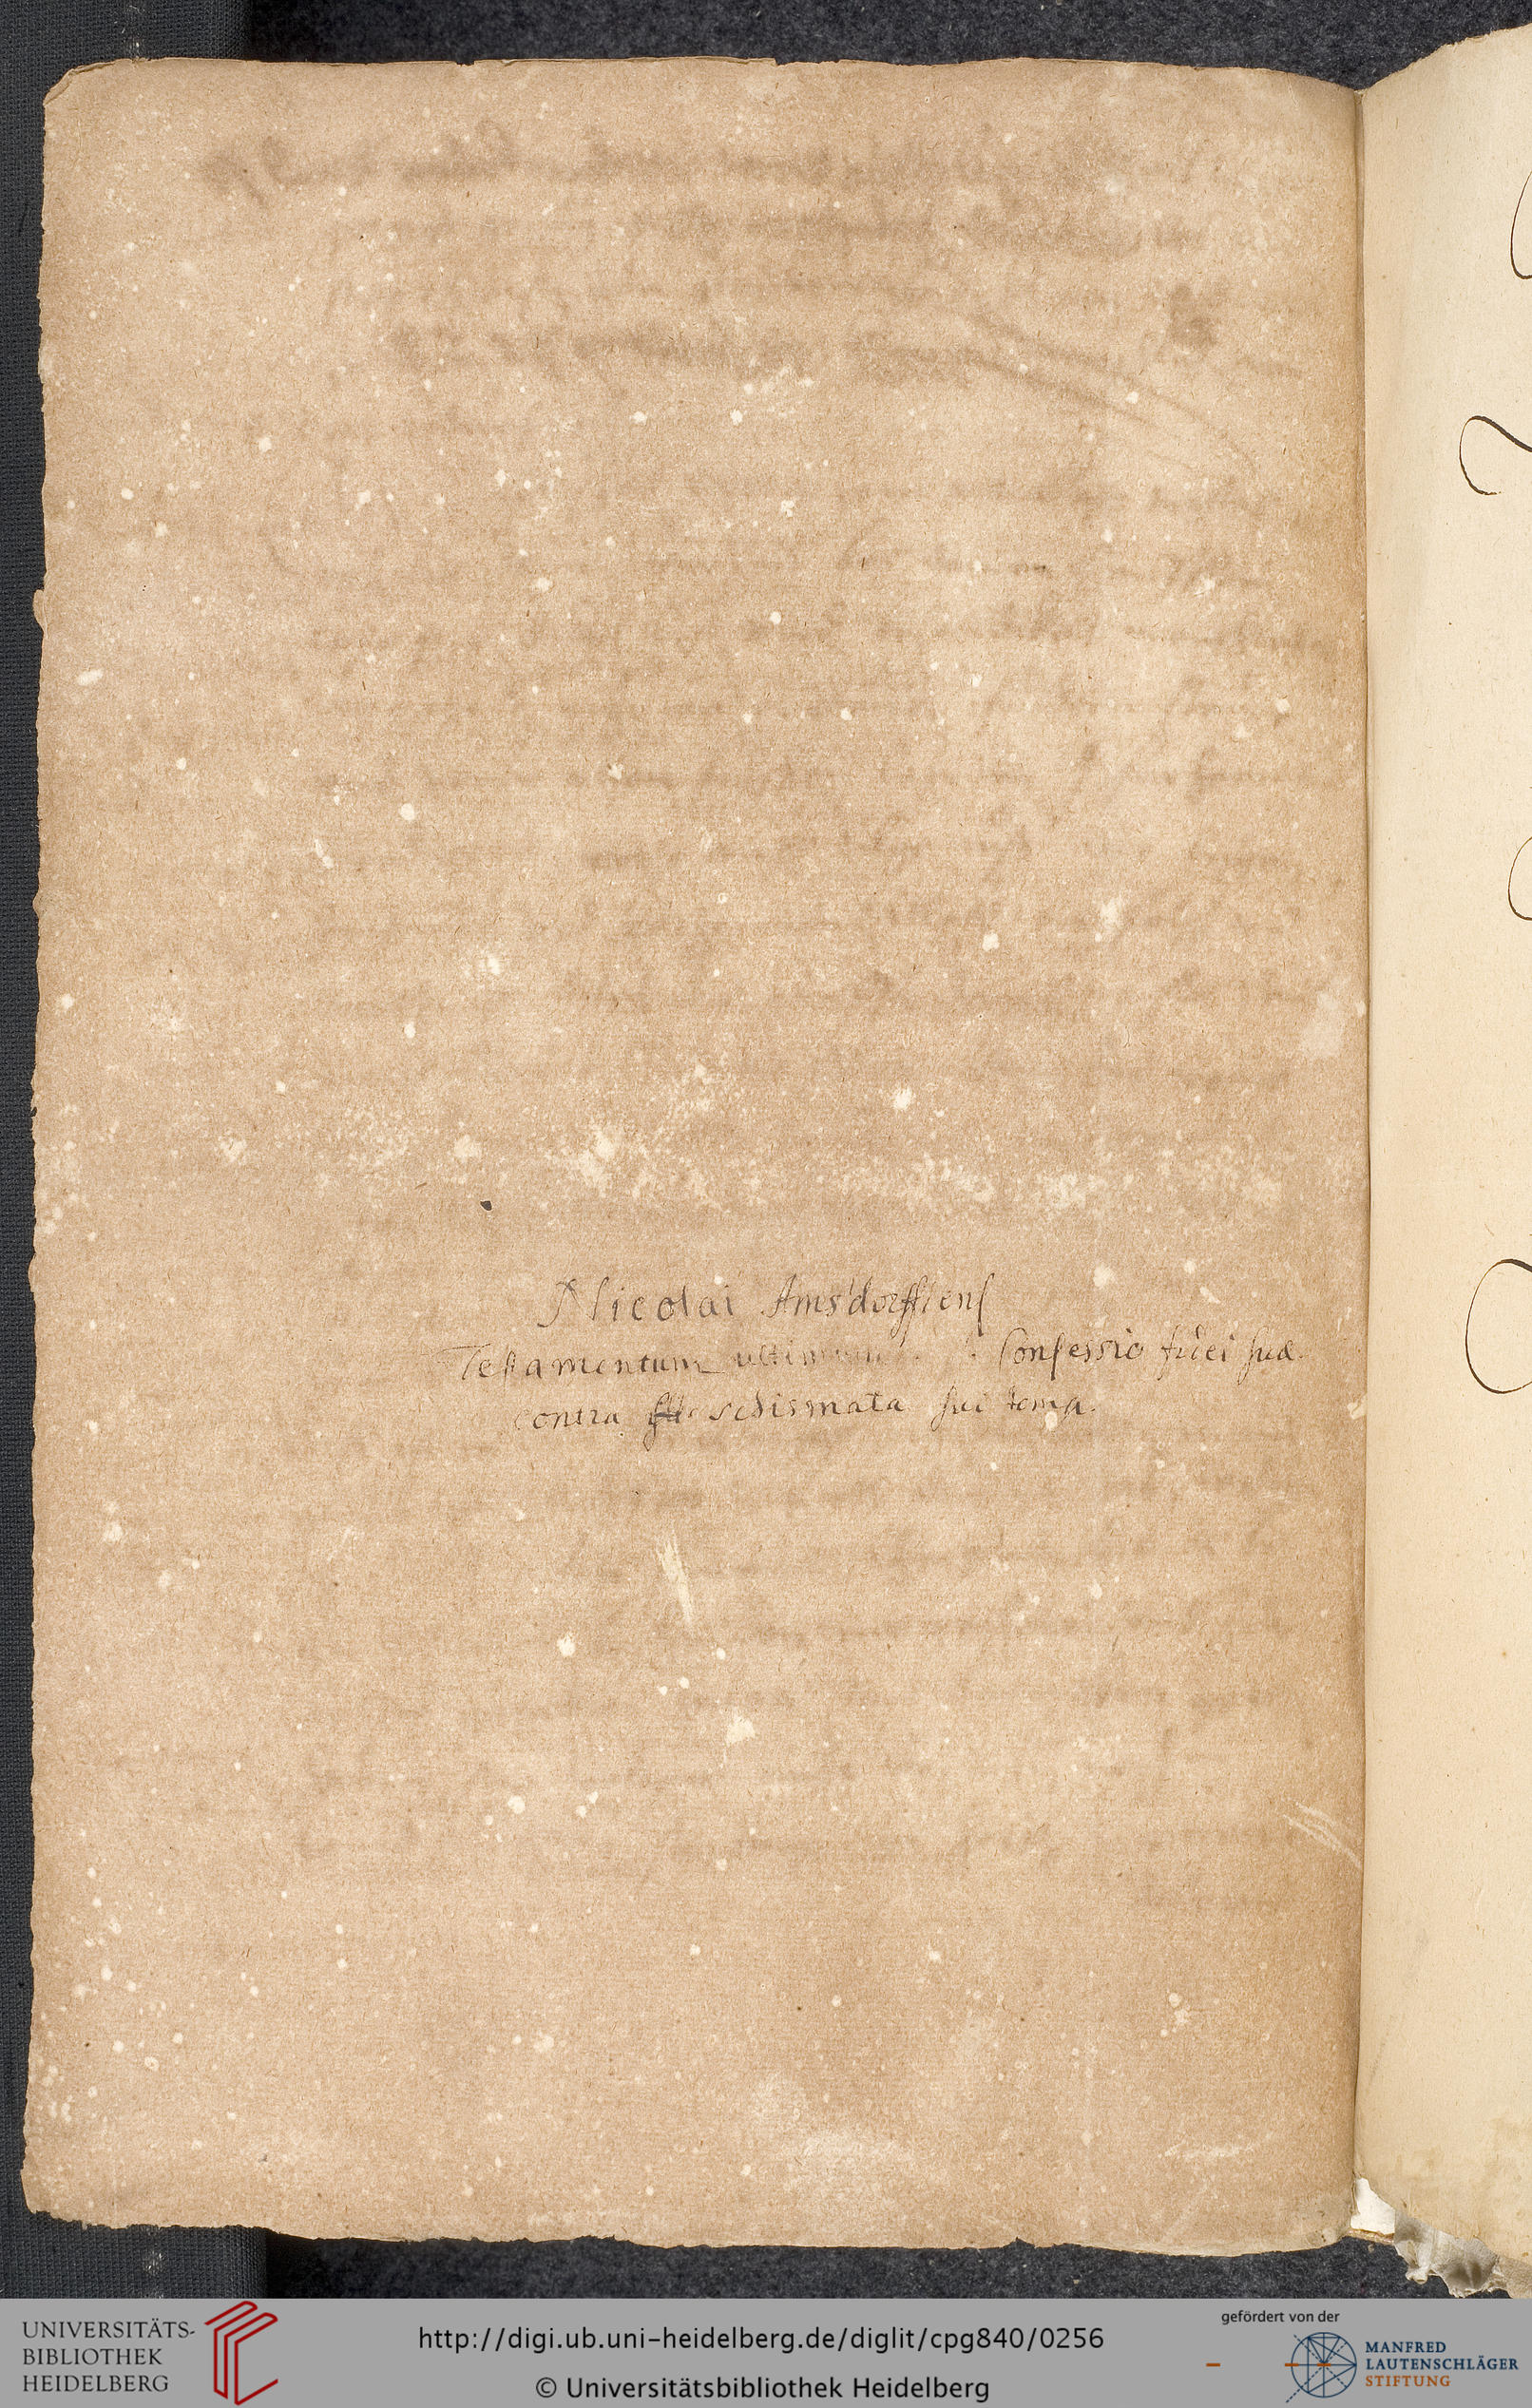 Nicolai Amsdorffiens
Testamentum ultimum. Confessio fidei suæ.
contra schismata sui temp.
UNIVERSITÄTS-
BIBLIOTHEK
HEIDELBERG
http://digi.ub.uni-heidelberg.de/diglit/cpg840/0256
© Universitätsbibliothek Heidelberg
gefördert von der
MANFRED
LAUTENSCHLÄGER
STIFTUNG